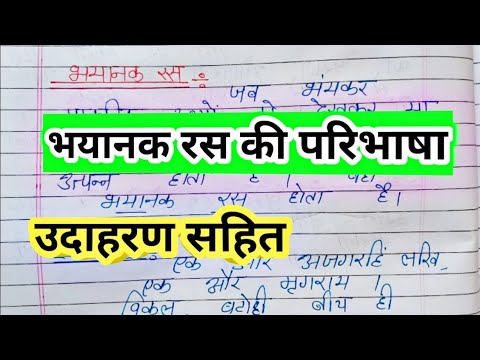 भयानक रस :-
जब भंयकर
देखकर या
भयानक रस की परिभाषा
उत्पन्न होता है ।
भयानक रस होता है।
उदाहरण सहित
एक ओर अजगरहिं लखि,
एक और मृगराय ।
विकल बटोही बीच ही